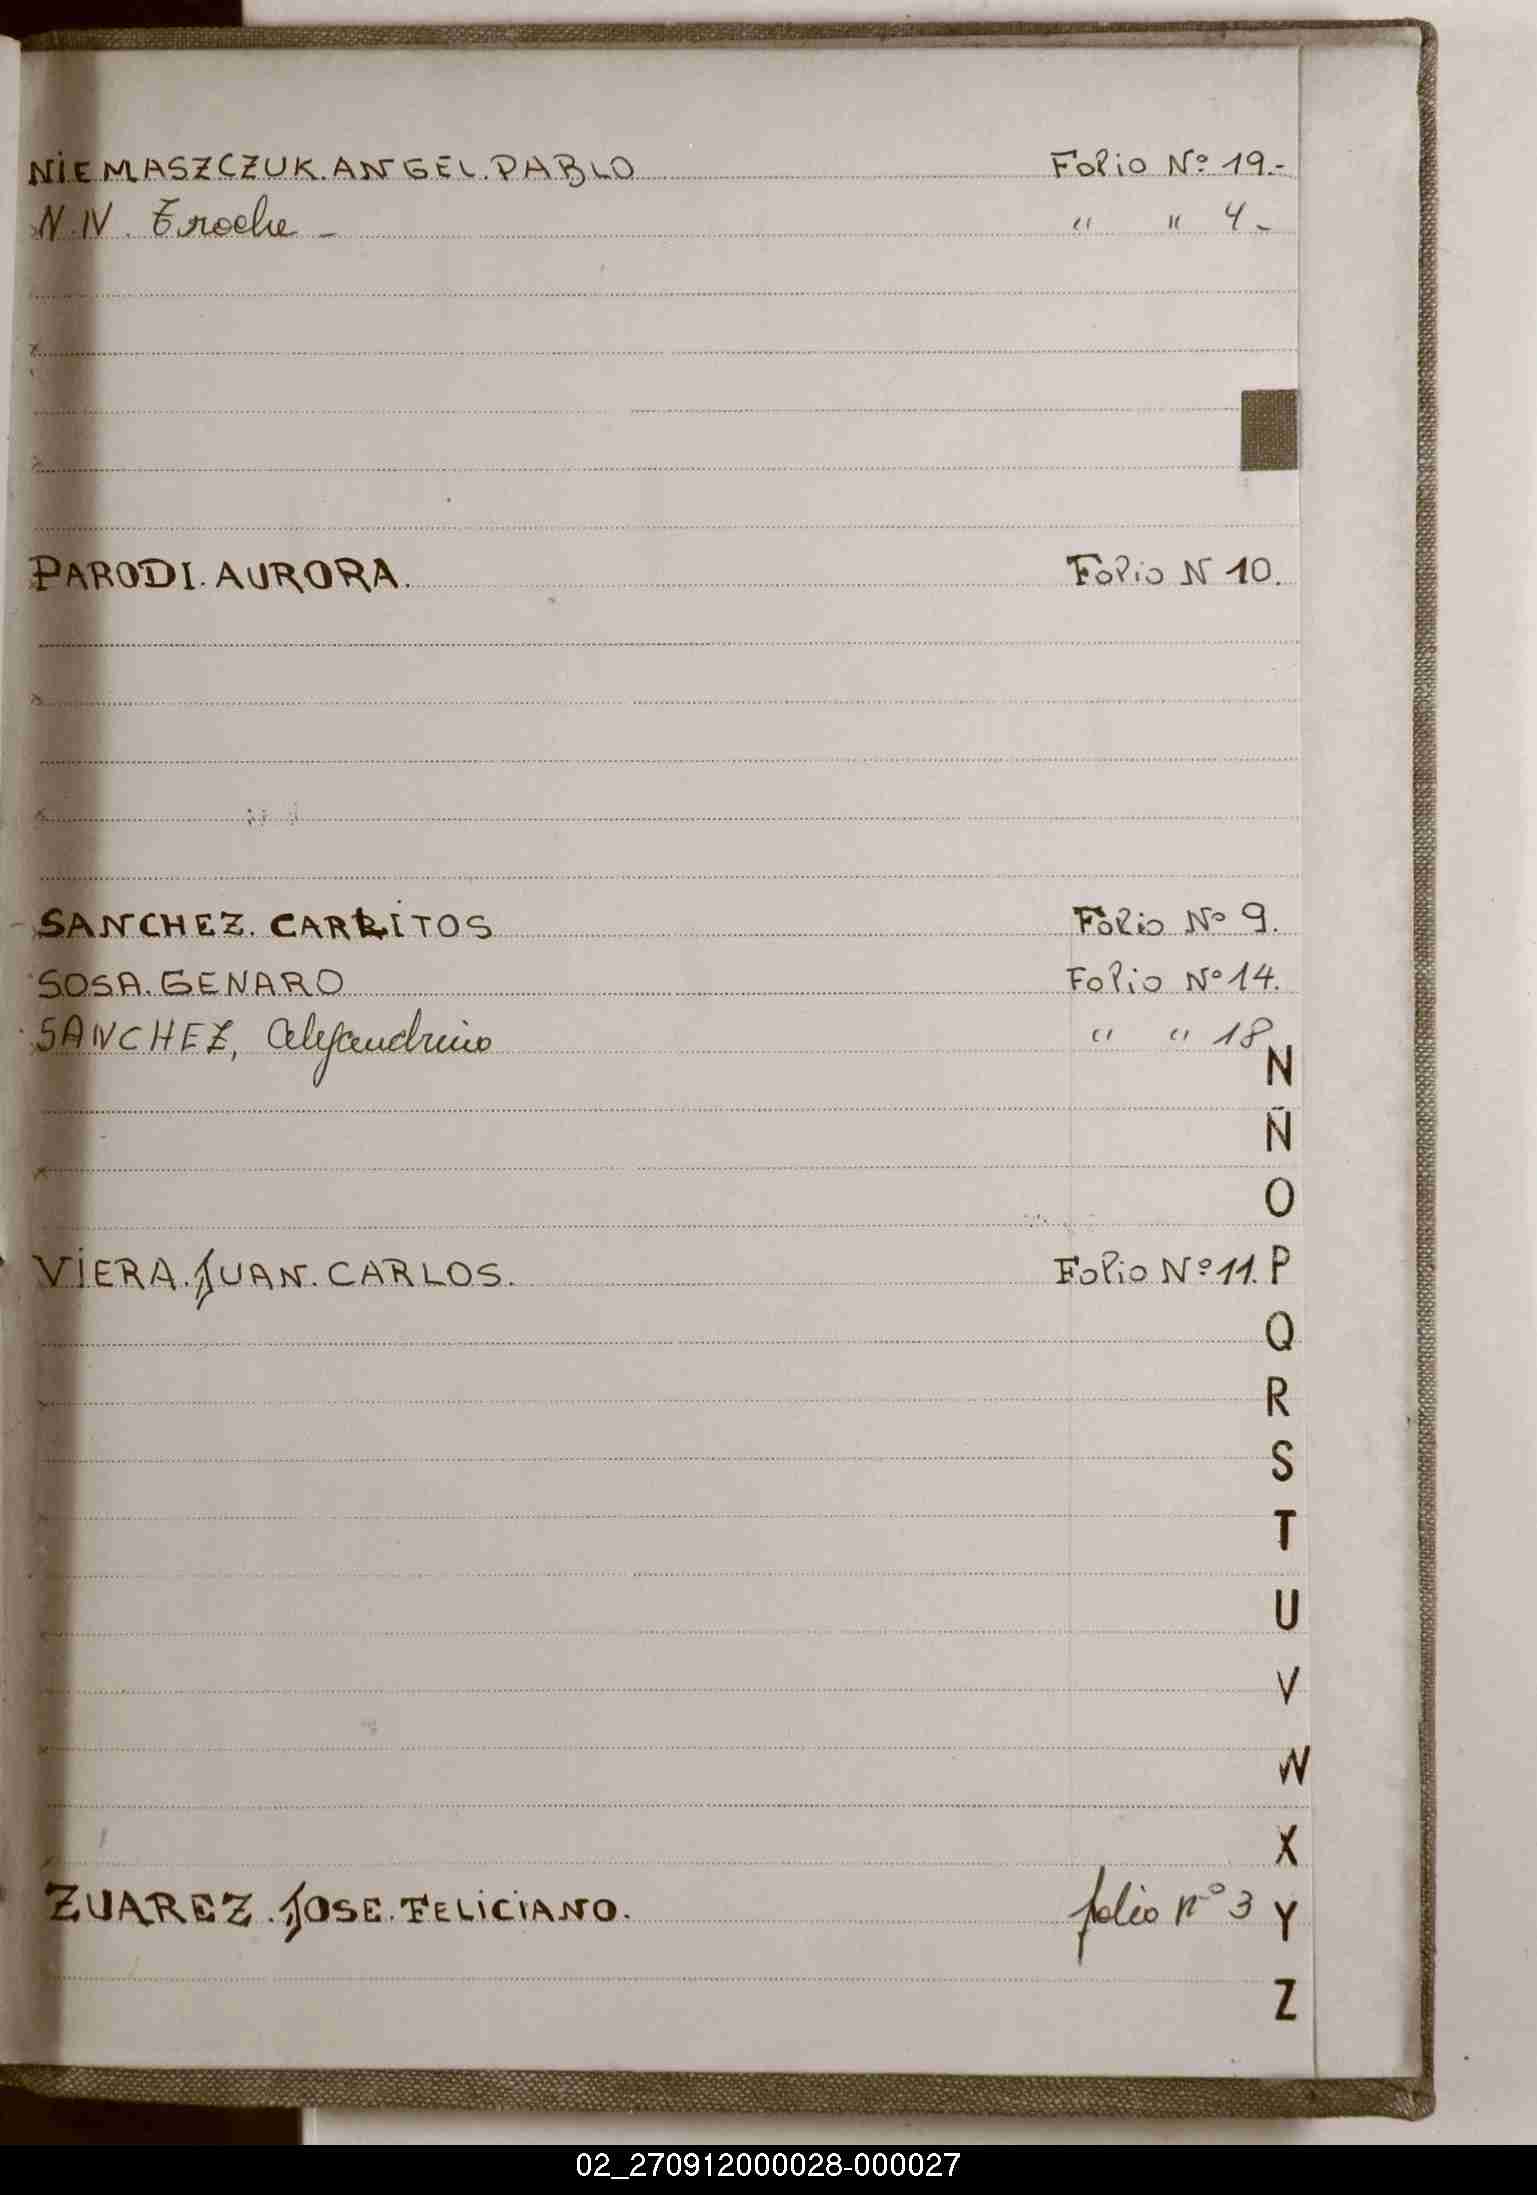 NIEMASZCZUK. ANGEL. PABLO Folio Nº 19.-
N.N. Troche - " " 4-
PARODI. AURORA. Folio N 10.
SANCHEZ. CARLITOS Folio Nº 9.
SOSA. GENARO Folio Nº 14.
SANCHEZ, Alejandrino " " 18
N
Ñ
O
VIERA. JUAN. CARLOS. Folio Nº 11. P
Q
R
S
T
U
V
W
X
ZUAREZ. JOSE. FELICIANO. folio nº 3 Y
Z
02_270912000028-000027